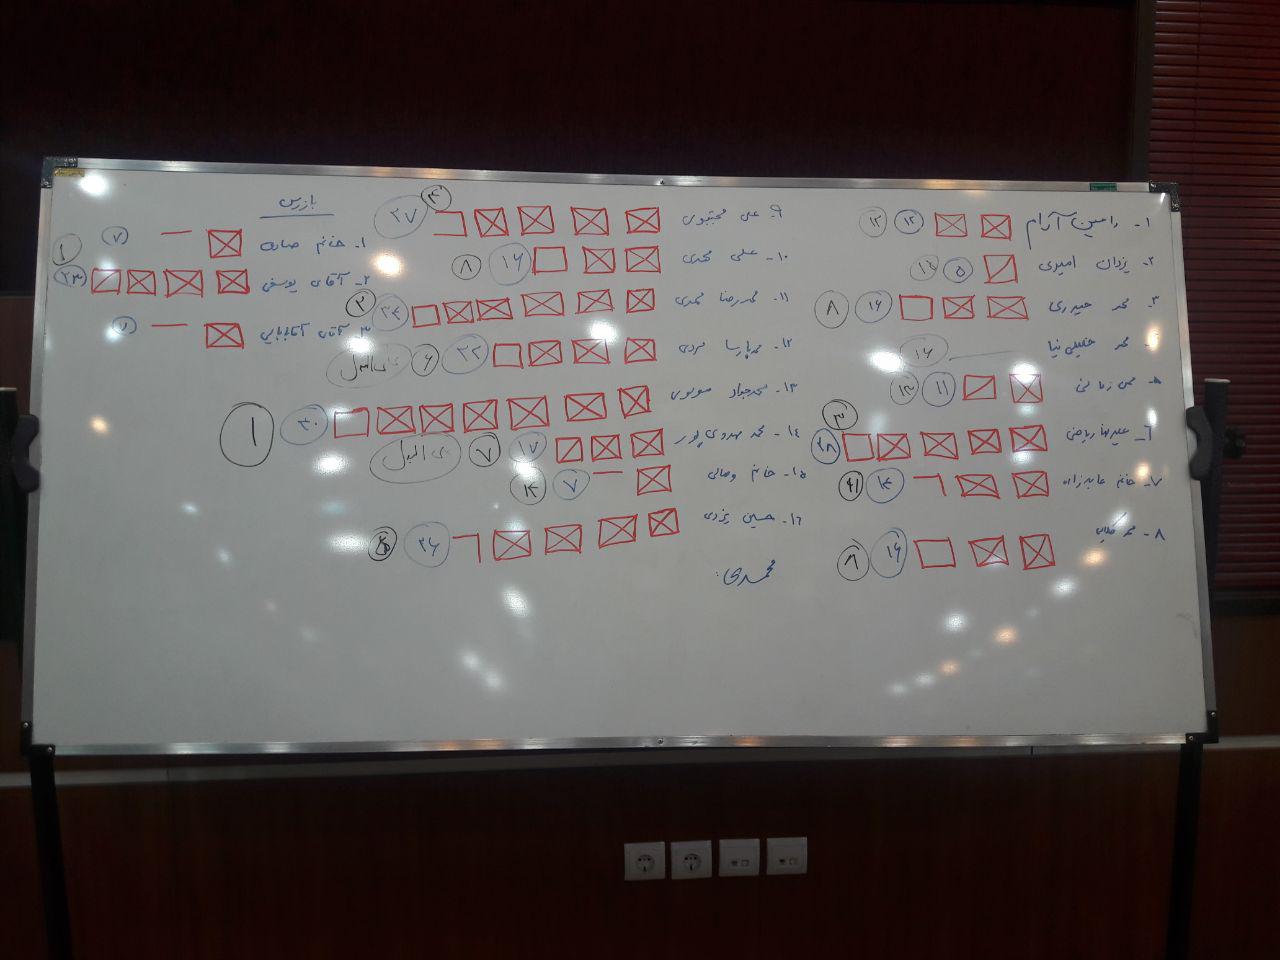 ۱- رامین آرام ۱۲ ۱۳
۲- یزدان امیری ۵ ۱۴
۳- محمد حیدری ۱۶ ۸
محمد خلیلی نیا ۱۶
۵- زمانی ۱۱ ۱۳
۶- علیرضا ریاضی ۲۸ ۳
۷- خانم عابدزاده ۱۴
۸- محمد ۱۶ ۸
۹- علی مجتبوی ۲۷ ۴
۱۰- علی محمدی ۱۶ ۸
۱۱- محمدرضا محمدی ۲
۱۲- محمدپارسا ۲۲ ۶ علی البدل
۱۳- محمدجواد موسوی ۳۰ ۱
۱۴- محمد مهدوی پور ۱۷ ۷ علی البدل
۱۵- خانم وصالی ۷ ۱۴
۱۶- حسین یزدی ۲۶
محمدی:
بازرس
۱- خانم صادق ۷
۲- آقای یوسفی ۲۳ ۱
۳- آقای آقابابایی ۷